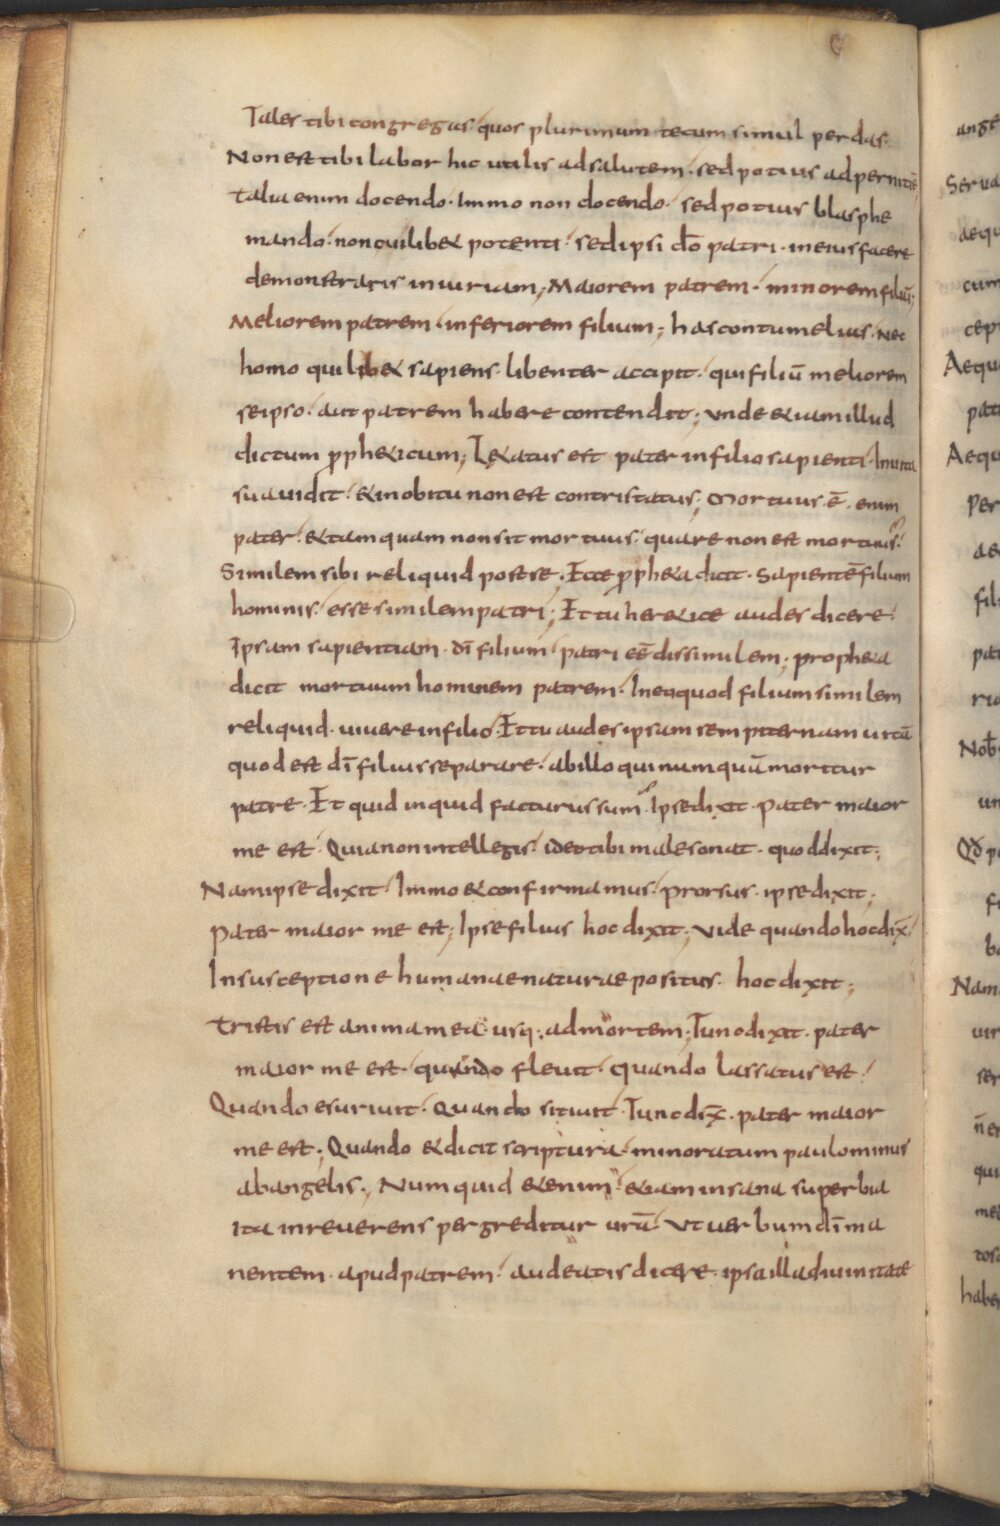 Tales tibi congregas quos plurimum tecum simul perdas.
Non est tibi labor hic utilis ad salutem. sed potius ad pernitiē
talia enim docendo. Immo non docendo. sed potius blasphe
mando. non cuilib& potenti. sed ipsi dō patri. in eius facere
demonstratis iniuriam; Maiorem patrem. minorem filiū;
Meliorem patrem. inferiorem filium; has contumelius. nec
homo quilib& sapiens. libenter accipit. qui filiū meliorem
seipso. aut patrem habere contendit; unde &iam illud
dictum ppħ&icum; L&atus est pater in filio sapienti. In uita
sua uidit. & in obitu non est contristatus; Mortuus. ē. enim
pater. & tamquam non sit mortuus. quare non est mortuus.
Similem sibi reliquid post se. Ecce ppħ&a dicit. Sapientē filium
hominis. esse similem patri; Et tu her&ice audes dicere.
Ipsam sapientiam. dī filium patri eē dissimilem; proph&a
dicit mortuum hominem patrem. In eo quod filium similem
reliquid. uiuere in filio. Et tu audes ipsam sempiternam uirtū
quod est dī filius separare. ab illo qui numquā moritur
patre. Et quid inquid facturus sum. Ipse dixit. pater maior
me est. Quia non intellegis. ideo tibi male sonat. quod dixit;
Nam ipse dixit. Immo & confirmamus. prorsus. ipse dixit;
Pater maior me est; Ipse filius hoc dixit; uide quando hoc dix̄.
In susceptione humanae naturae positus. hoc dixit;
Tristis est anima mea usq; ad mortem; Tunc dixit. pater
maior me est. quando fleuit. quando lassatus est.
Quando esuriuit. Quando sitiuit. Tunc dix̄. pater maior
me est; Quando & dicit scriptura. minoratum paulominus
ab angelis; Numquid &enim &iam insana superbia
ita inreuerens pergreditur urā. Ut uerbum dī ma
nentem. apud patrem. audeatis dicere. ipsa illa diuinitate